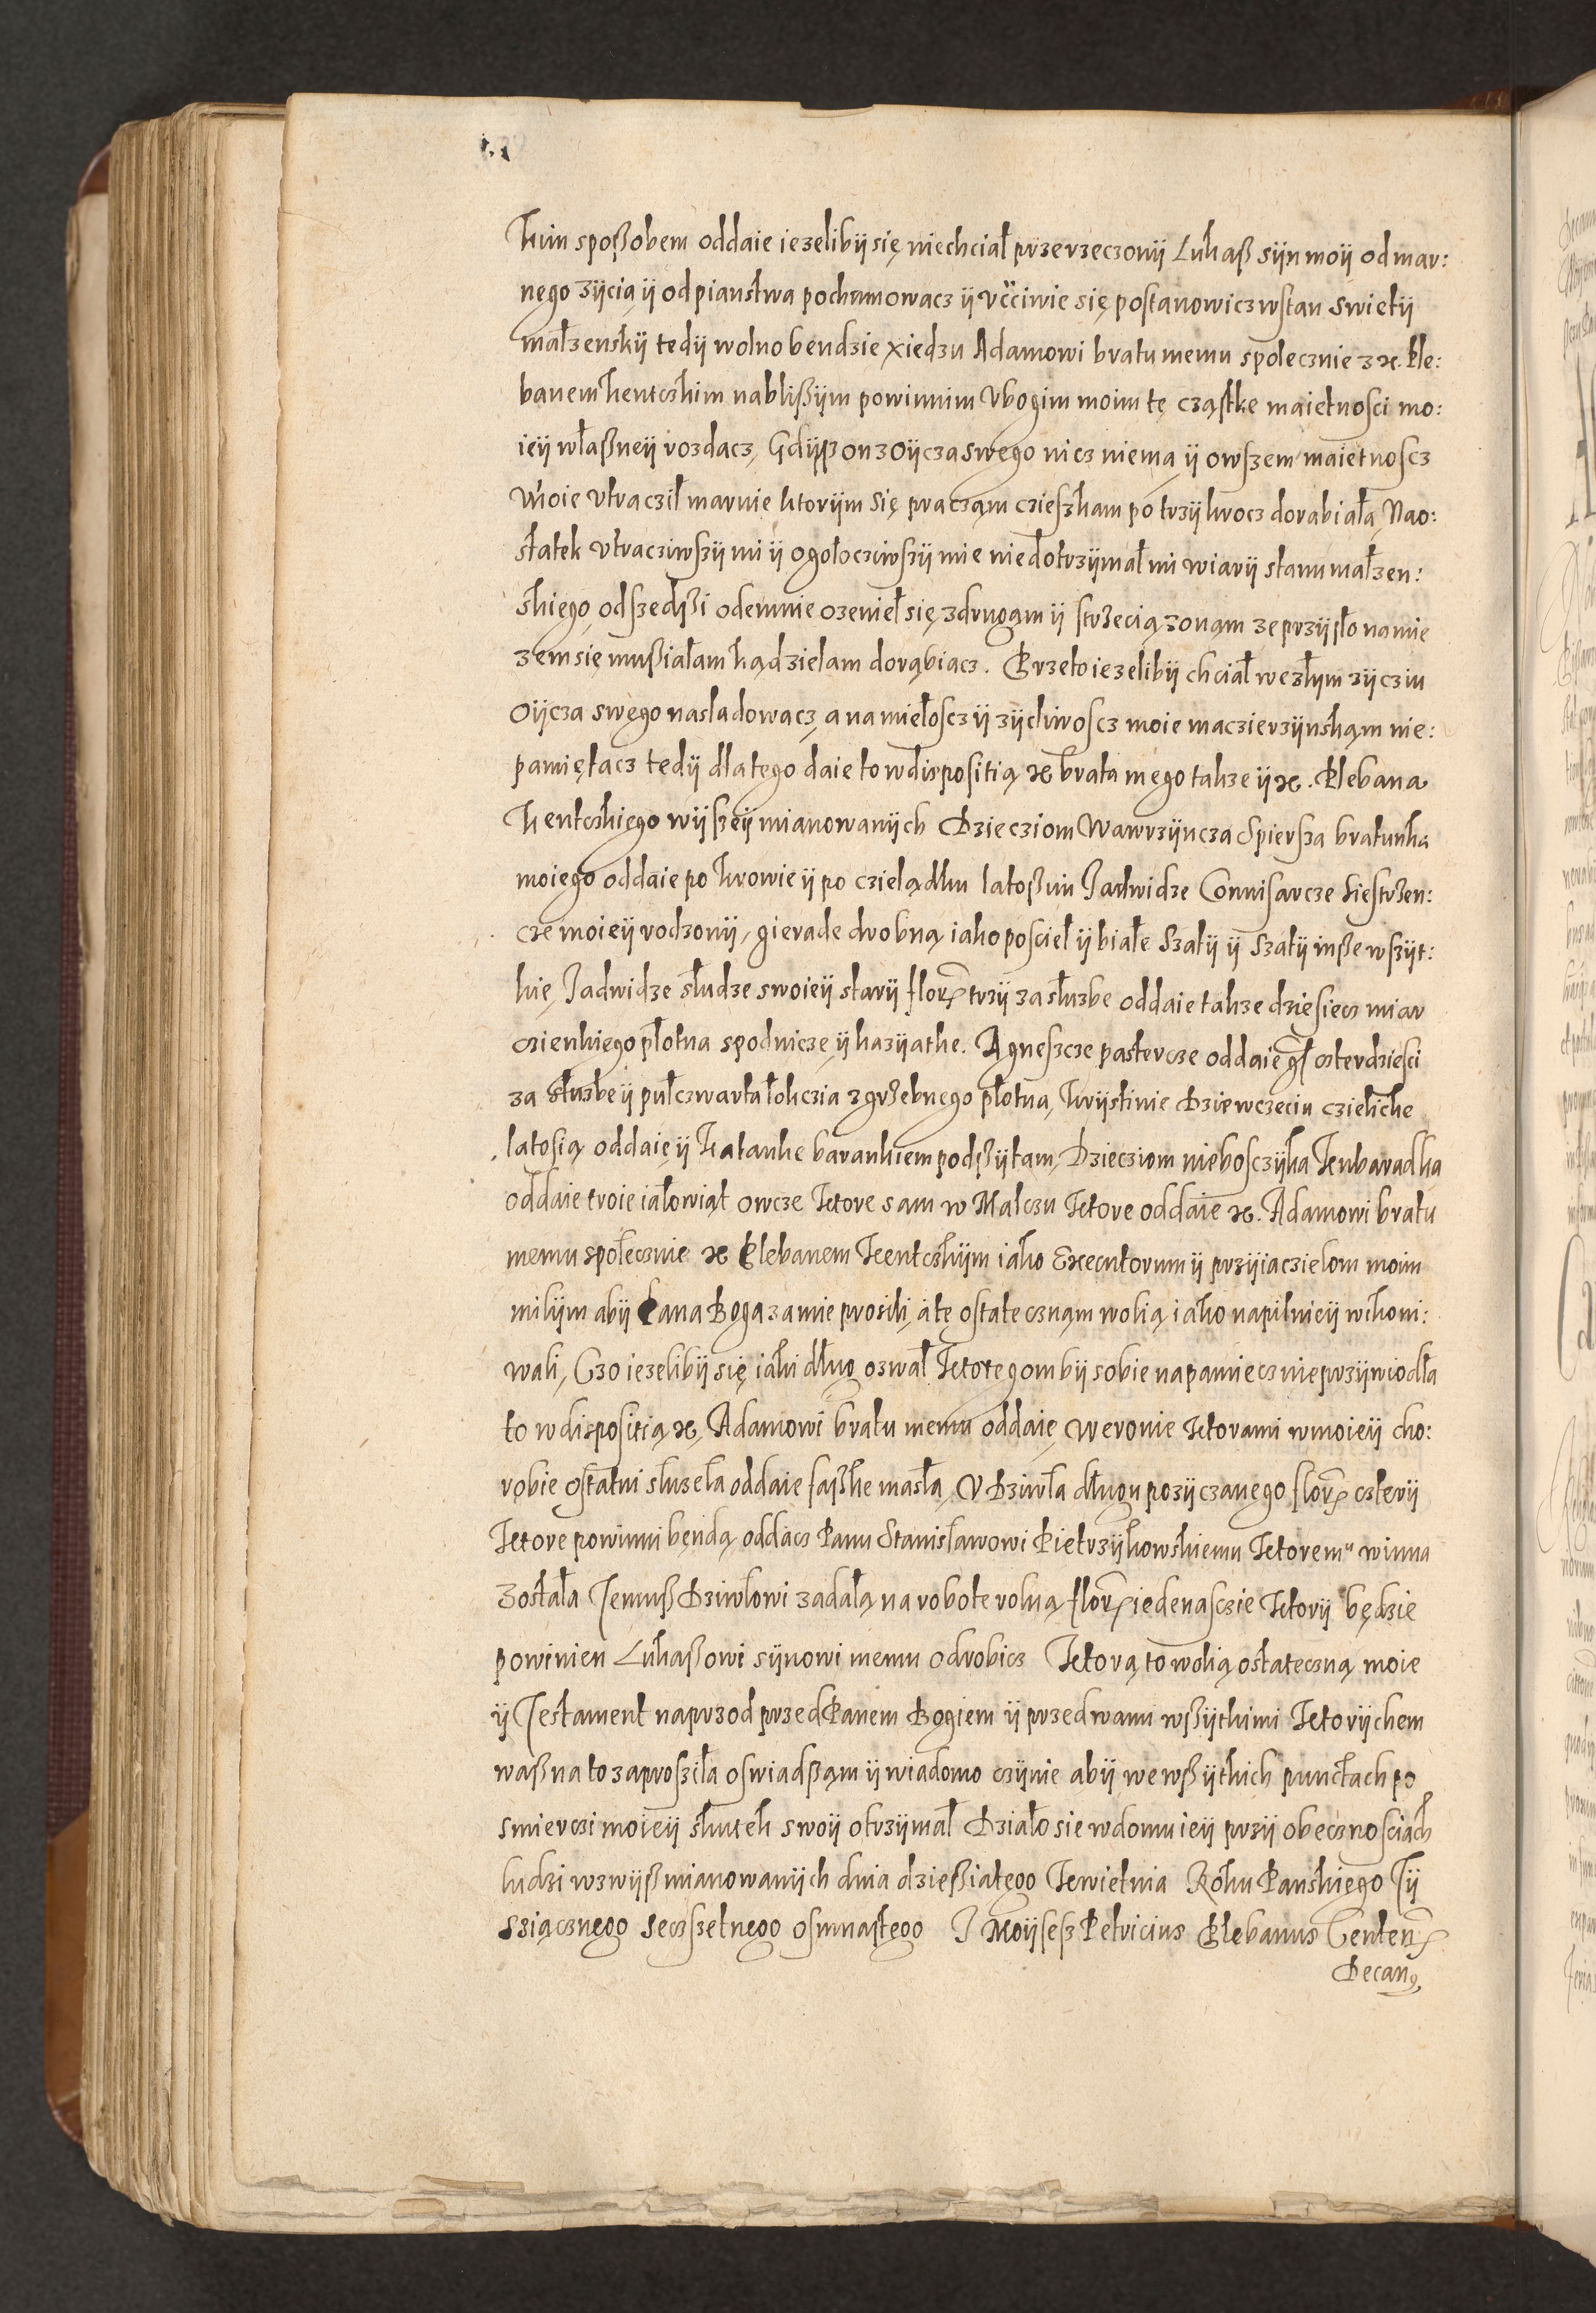 kim spoßobem oddaie iezelibÿ się niechciał przerzeczonÿ Lukaß sÿn moÿ od mar:
nego zÿcią ÿ od pianstwa pochamowacz ÿ vććiwie się postanowicz wstan swietÿ
małzenskÿ tedÿ wolno bendzie xiedzu Adamowi bratu memu spolecznie z x. Ple:
banem kentczkim nablißÿm powinnim Vbogim moim tę cząstke maietnosci mo:
ieÿ właßneÿ rozdacz, Gdÿß on z Oÿcza swego nicz niema ÿ owszem maietnoscz
Moie vtracził marnie ktorÿm się pracząm czieszkam po trzÿkrocz dorabiałą, Nao:
statek vtracziwszÿ mi ÿ ogołocziwszÿ mie niedotrzÿmał mi wiarÿ stanu małzen:
skiego, odszedßi odemnie ozenieł się z drugąm ÿ strzecią zonąm ze przÿsło namie
zem się mußiałam kądzielam dorąbiacz. Przeto iezelibÿ chciał we złÿm zÿcziu
Oÿcza swego nasladowacz, a na miełoscz ÿ zÿcliwoscz moie maczierzÿnskąm nie:
pamiętacz tedÿ dla tego daie to w dispositią x brata mego takze ÿ x. Plebana
kentczkięgo wÿszeÿ mianowanÿch Dziecziom Wawrzÿncza Spiersza bratunka
moiego oddaie po krowie ÿ po czielądku latoßim Jadwidze Connisarcze siestrzen:
cze moieÿ rodzonÿ, gierade drobną iako posciel ÿ białe Szatÿ ÿ Szatÿ inße wszÿt:
kię, Jadwidze słudze swoieÿ starÿ flor trzÿ za słuzbe oddaie takze dziesiecz miar
czienkiego płotna spodnicze ÿ kazÿatke. Agneszcze pastercze oddaię gł czterdziesci
za słuzbe ÿ pułczwarta łokczia zgrzebnego płotna, krÿstinie Dziewczeciu czieliche
latosią oddaię ÿ katanke barankiem podßÿtam, Dziecziom nieboszczÿka Kubaradka
oddaie troie iałowiąt owcze Ktore sam w Malczu Ktore oddaie x. Adamowi bratu
memu społecznie x Plebanem Kentczkÿm iako Executorum ÿ przÿiaczielom moim
miłÿm abÿ Pana Boga za mie prosili, a tę ostatecznąm wolią iako napilnieÿ wikoni:
wali, Czo iezelibÿ się iaki dług ozwał Ktoregombÿ sobie na pamiecz nieprzÿwiodła
to w dispositią x, Adamowi bratu memu oddaię, Weronie Ktorami w moieÿ cho:
robie ostatni słuzeła oddaie faßke masła, V Dziwła długu pozÿczanego flor czterÿ
Ktore powinni bęndą oddacz Panu Stanisławowi Pietrzÿkowskiemu Ktoremu winna
Została Jemuß Dziwłowi zadałą na robote rolną flor iedenasczie Ktorÿ będzie
powinien Lukaßowi sÿnowi memu odrobicz Ktorą to wolią ostateczną moie
ÿ Testament naprzod przed Panem Bogiem ÿ przed wami wßÿtkimi Ktorÿchem
waß na to zaprosziła oswiadßąm ÿ wiadomo czÿnie abÿ we wßÿtkich punctach po
smierczi moieÿ skutek swoÿ otrzÿmał Działo sie w domu ieÿ przÿ obecznosciach
ludzi wzwÿß mianowanÿch dnia dzießiatęgo Kwietnia Roku Panskiego Tÿ
sziącznego seczszetnego osmnastego J Moÿsesz Petricius Plebanus Centen
Decanus